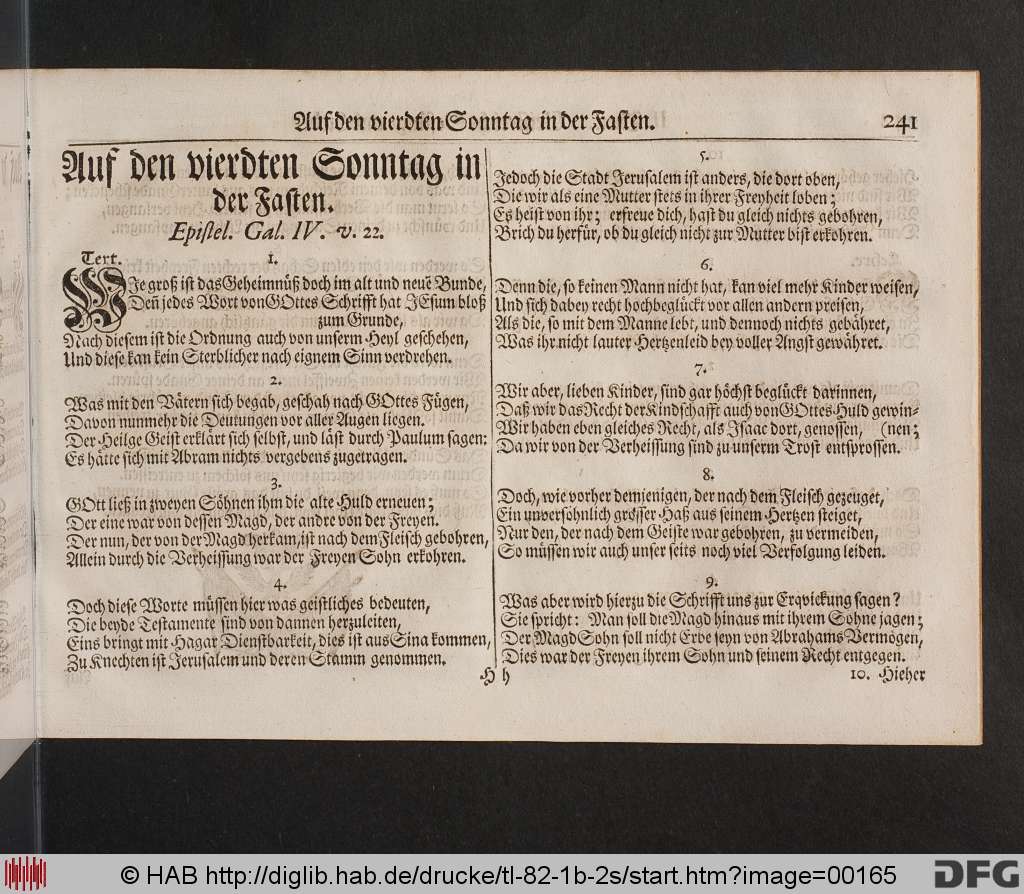 Auf den vierdten Sonntag in der Fasten. 241
Auf den vierdten Sonntag in
der Fasten.
Epistel. Gal. IV. v. 22.
Text. 1.
WJe groß ist das Geheimnüß doch im alt und neuē Bunde,
Deñ jedes Wort von GOttes Schrifft hat JEsum bloß
zum Grunde,
Nach diesem ist die Ordnung auch von unserm Heyl geschehen,
Und diese kan kein Sterblicher nach eignem Sinn verdrehen.
2.
Was mit den Vätern sich begab, geschah nach GOttes Fügen,
Davon nunmehr die Deutungen vor aller Augen liegen.
Der Heilge Geist erklärt sich selbst, und läst durch Paulum sagen:
Es hätte sich mit Abram nichts vergebens zugetragen.
3.
GOtt ließ in zweyen Söhnen ihm die alte Huld erneuen;
Der eine war von dessen Magd, der andre von der Freyen.
Der nun, der von der Magd herkam, ist nach dem Fleisch gebohren,
Allein durch die Verheissung war der Freyen Sohn erkohren.
4.
Doch diese Worte müssen hier was geistliches bedeuten,
Die beyde Testamente sind von dannen herzuleiten,
Eins bringt mit Hagar Dienstbarkeit, dies ist aus Sina kommen,
Zu Knechten ist Jerusalem und deren Stamm genommen.
5.
Jedoch die Stadt Jerusalem ist anders, die dort oben,
Die wir als eine Mutter stets in ihrer Freyheit loben;
Es heist von ihr; erfreue dich, hast du gleich nichts gebohren,
Brich du herfür, ob du gleich nicht zur Mutter bist erkohren.
6.
Denn die, so keinen Mann nicht hat, kan viel mehr Kinder weisen,
Und sich dabey recht hochbeglückt vor allen andern preisen,
Als die, so mit dem Manne lebt, und dennoch nichts gebähret,
Was ihr nicht lauter Hertzenleid bey voller Angst gewähret.
7.
Wir aber, lieben Kinder, sind gar höchst beglückt darinnen,
Daß wir das Recht der Kindschafft auch von GOttes Huld gewin-
Wir haben eben gleiches Recht, als Isaac dort, genossen, (nen;
Da wir von der Verheissung sind zu unserm Trost entsprossen.
8.
Doch, wie vorher demjenigen, der nach dem Fleisch gezeuget,
Ein unversöhnlich grosser Haß aus seinem Hertzen steiget,
Nur den, der nach dem Geiste war gebohren, zu vermeiden,
So müssen wir auch unser seits noch viel Verfolgung leiden.
9.
Was aber wird hierzu die Schrifft uns zur Erqvickung sagen?
Sie spricht: Man soll die Magd hinaus mit ihrem Sohne jagen;
Der Magd Sohn soll nicht Erbe seyn von Abrahams Vermögen,
Dies war der Freyen ihrem Sohn und seinem Recht entgegen.
H h 10. Hieher
© HAB http://diglib.hab.de/drucke/tl-82-1b-2s/start.htm?image=00165
DFG